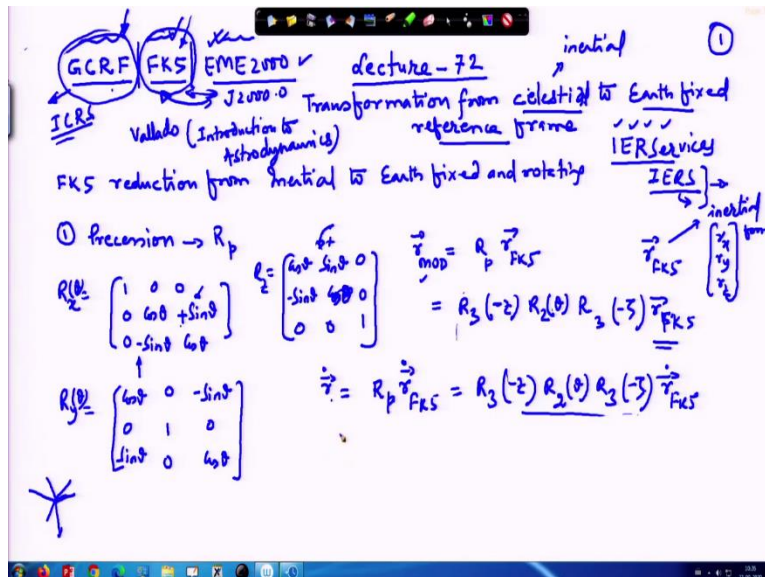 ①
GCRF FK5 EME2000 ✓ Lecture-72 inertial
ICRS J2000.0 Transformation from celestial to Earth fixed
reference frame
Vallado (Introduction to
Astrodynamics)
IERServices
IERS
FK5 reduction from Inertial to Earth fixed and rotating
① Precession → R_p
R_x(θ) = [1 0 0
0 Cosθ +Sinθ
0 -Sinθ Cosθ]
R_z = [Cosθ Sinθ 0
-Sinθ Cosθ 0
0 0 1]
r⃗_MOD = R_p r⃗_FK5
= R_3(-z) R_2(θ) R_3(-ζ) r⃗_FK5
r⃗_FK5 inertial
[r_x
r_y
r_z]
R_y(θ) = [Cosθ 0 -Sinθ
0 1 0
Sinθ 0 Cosθ]
ṙ⃗ = R_p ṙ⃗_FK5 = R_3(-z) R_2(θ) R_3(-ζ) ṙ⃗_FK5